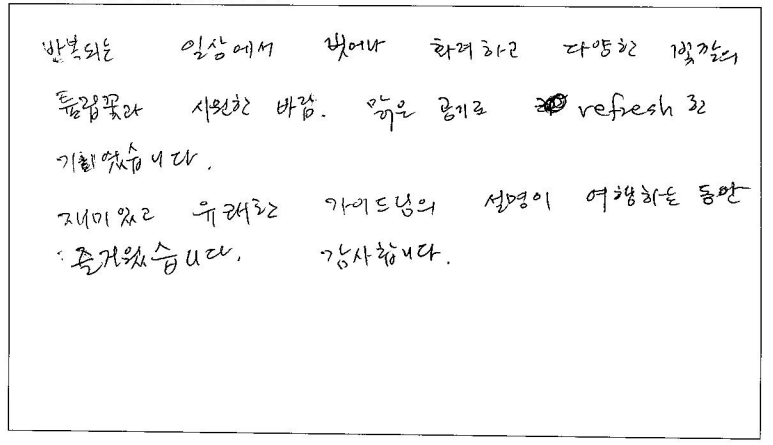 반복되는 일상에서 벗어나 화려하고 다양한 빛깔의
튤립꽃과 시원한 바람. 맑은 공기로 refresh 한
기회였습니다.
재미있고 유쾌한 가이드님의 설명이 여행하는 동안
즐거웠습니다. 감사합니다.